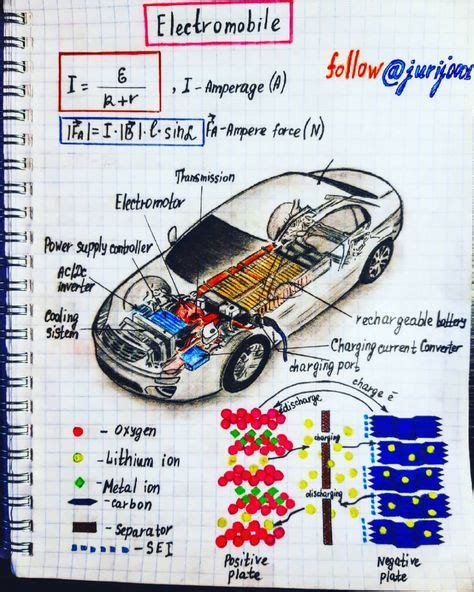 Electromobile
follow @jurijoox
I = ε / R + r , I - Amperage (A)
|F⃗A| = I · |B⃗| · l · sin α F⃗A - Ampere force (N)
Transmission
Electromotor
Power supply controller
AC/DC
inverter
Cooling
sistem
rechargeable battery
Charging current Converter
charging port
charge ē
discharge
charging
discharging
- Oxygen
- Lithium ion
- Metal ion
- carbon
- Separator
- SEI
SEI
Positive
plate
Negative
plate